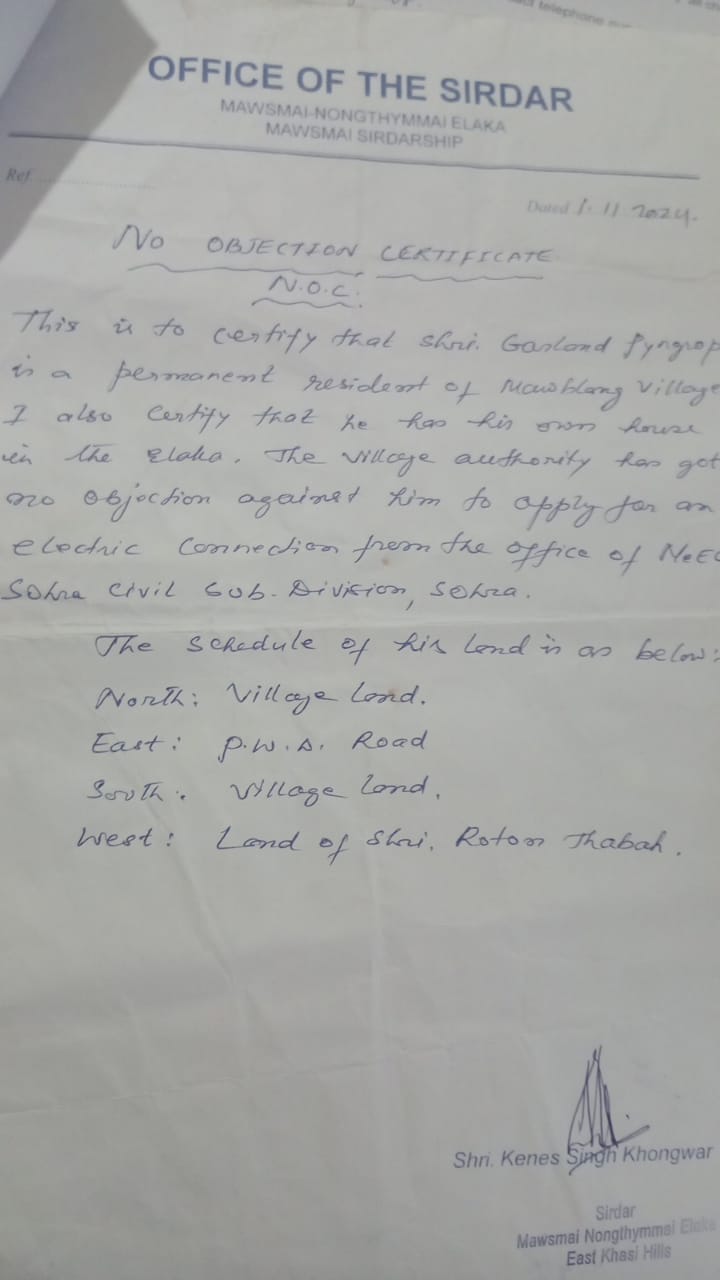 telephone
OFFICE OF THE SIRDAR
MAWSMAI-NONGTHYMMAI ELAKA
MAWSMAI SIRDARSHIP
Ref.
Dated 1.11.2024.
No OBJECTION CERTIFICATE
N.O.C.
This is to certify that Shri. Garland Pyngrop
is a permanent resident of Mawblang Village
I also Certify that he has his own house
in the Elaka. The Village authority has got
no objection against him to apply for an
electric connection from the office of NeEC
Sohra Civil Sub-Division, Sohra.
The Schedule of his land is as below:
North: Village land.
East: P.W.D. Road
South: Village land.
West: Land of Shri. Rotom Thabah.
Shri. Kenes Singh Khongwar
Sirdar
Mawsmai Nongthymmai Elaka
East Khasi Hills